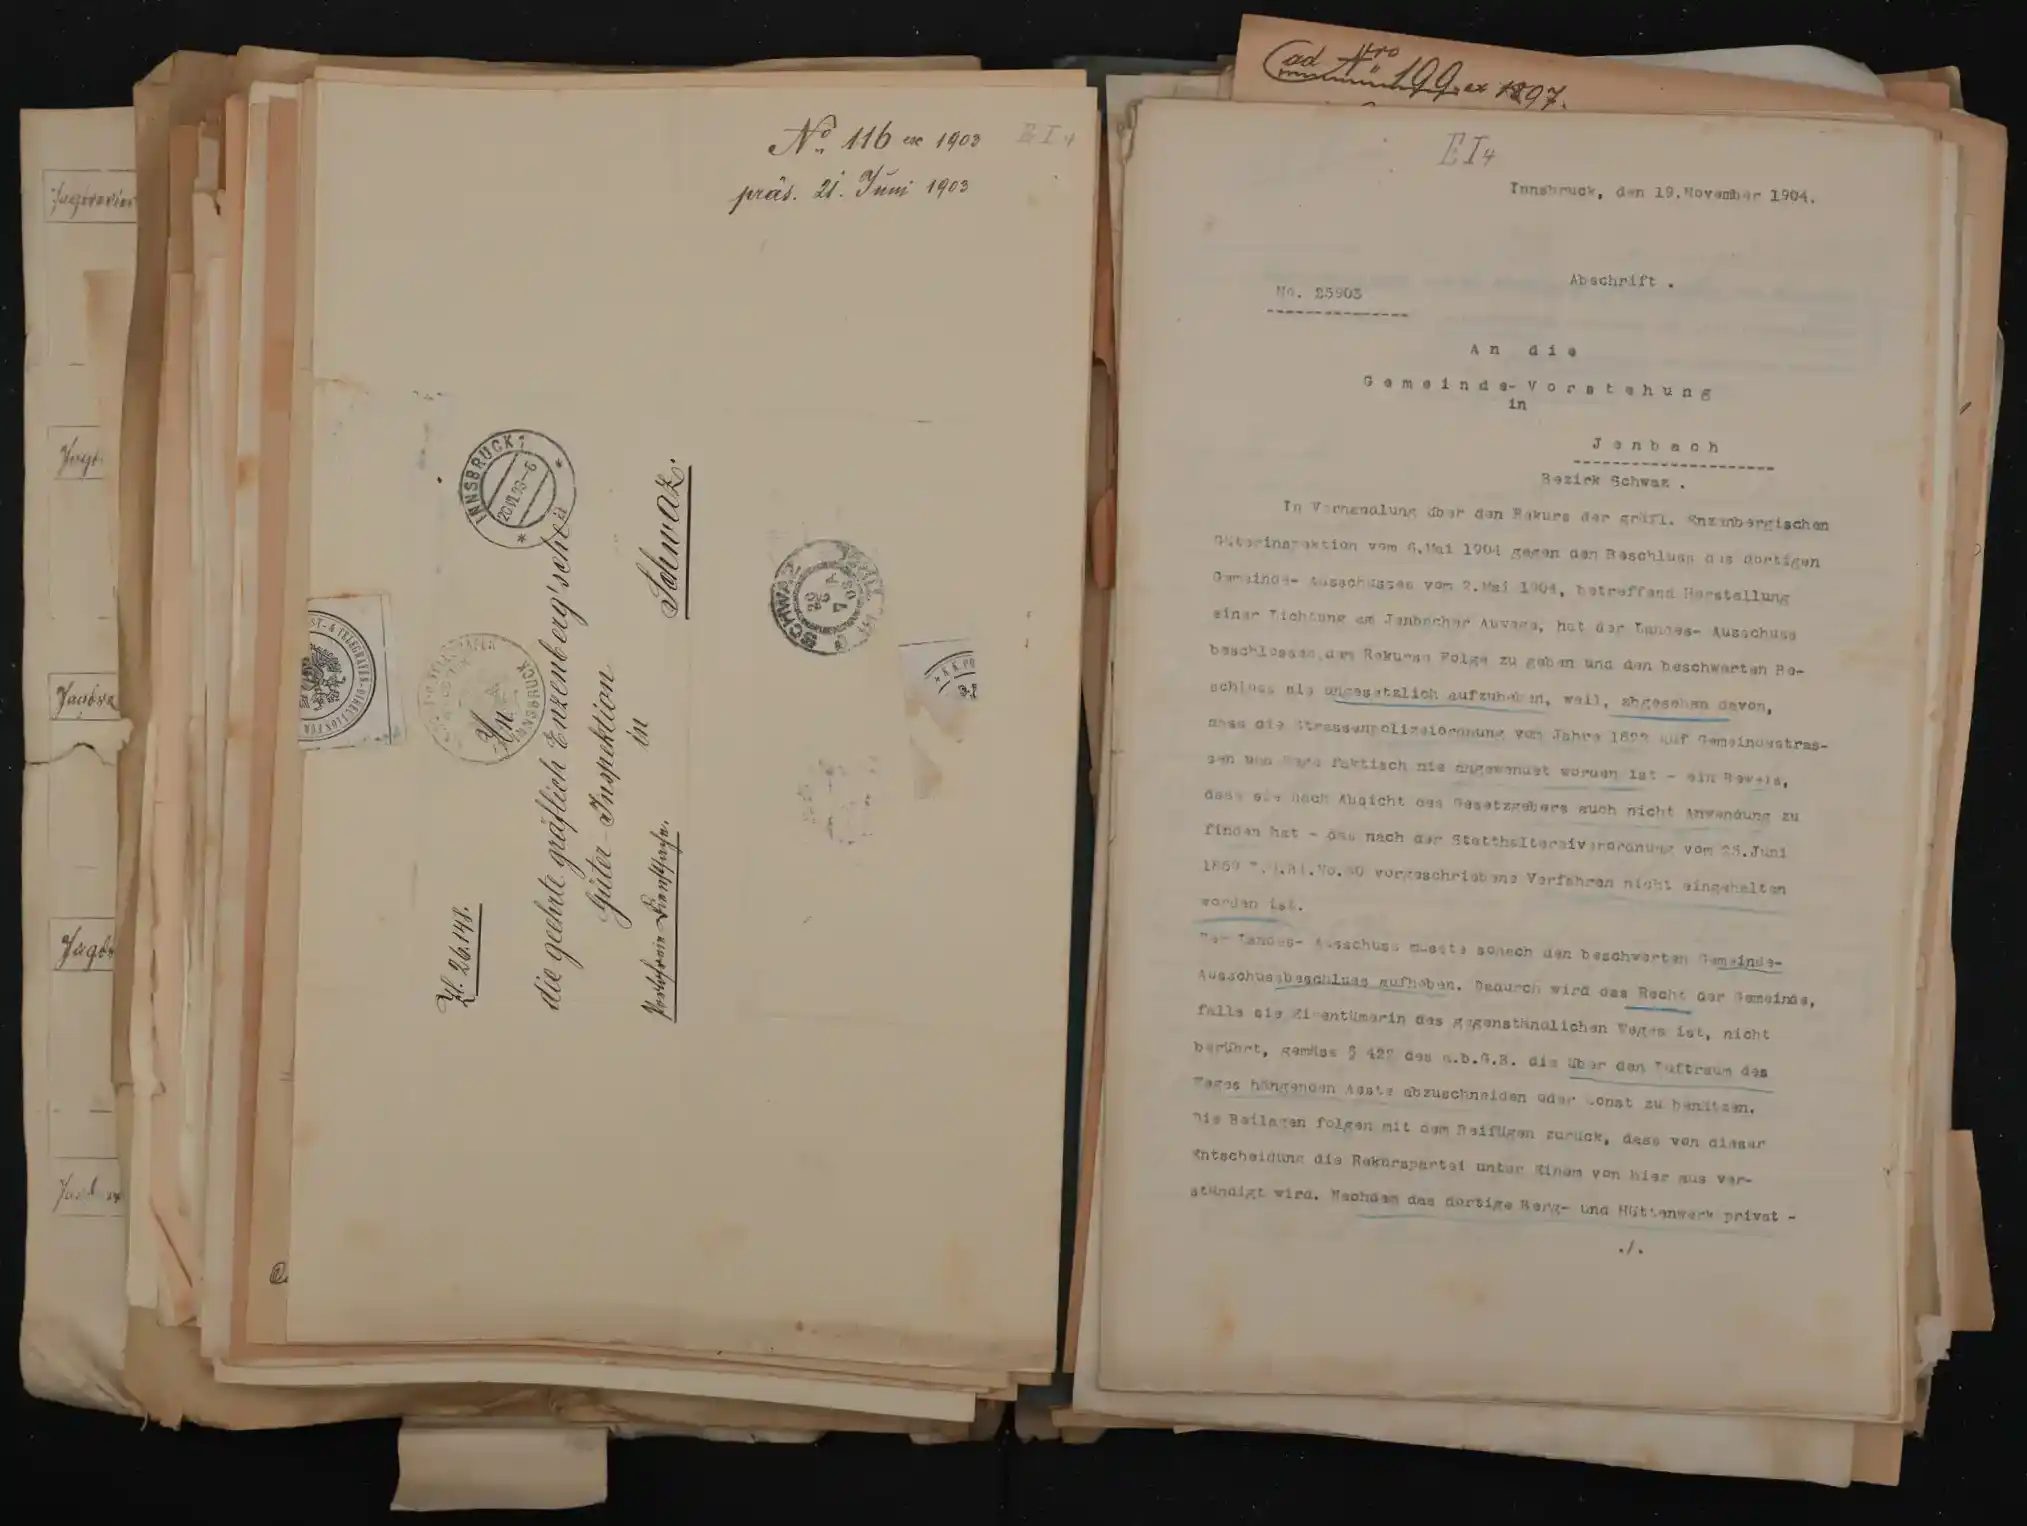 Jagdrevier
No. 116 ex 1903 E I 4
präs. 21. Juni 1903
INNSBRUCK 1
20 VI 03-6
SCHWAZ
Zl. 26.148.
An
die geehrte gräflich Enzenberg'sche
Güter-Inspektion
in
Schwaz.
Portofreie Dienstsache.
ad Nro 199 ex 1897.
E I 4
Innsbruck, den 19.November 1904.
Abschrift .
No. 25903
An die
Gemeinde-Vorstehung
in
Jenbach
Bezirk Schwaz .
In Verhandlung über den Rekurs der gräfl. Enzenbergischen
Güterinspektion vom 6.Mai 1904 gegen den Beschluss des dortigen
Gemeinde- Ausschusses vom 2.Mai 1904, betreffend Herstellung
einer Lichtung am Jenbacher Auwege, hat der Landes- Ausschuss
beschlossen dem Rekurse Folge zu geben und den beschwerten Be-
schluss als ungesetzlich aufzuheben, weil, abgesehen davon,
dass die Strassenpolizeiordnung vom Jahre auf Gemeindestras-
sen und Wege faktisch nie angewendet worden ist - ein Beweis,
dass sie nach Absicht des Gesetzgebers auch nicht Anwendung zu
finden hat - das nach der Statthaltereiverordnung vom 25.Juni
vorgeschriebene Verfahren nicht eingehalten
worden ist.
Der Landes- Ausschuss musste sonach den beschwerten Gemeinde-
Ausschussbeschluss aufheben. Dadurch wird das Recht der Gemeinde,
falls sie Eigentümerin des gegenständlichen Weges ist, nicht
berührt, gemäss § 422 des a.b.G.B. die über den Luftraum des
Weges hängenden Aeste abzuschneiden oder sonst zu benützen.
Die Beilagen folgen mit dem Beifügen zurück, dass von dieser
Entscheidung die Rekurspartei unter Einem von hier aus ver-
ständigt wird. Nachdem das dortige Berg- und Hüttenwerk privat -
./.